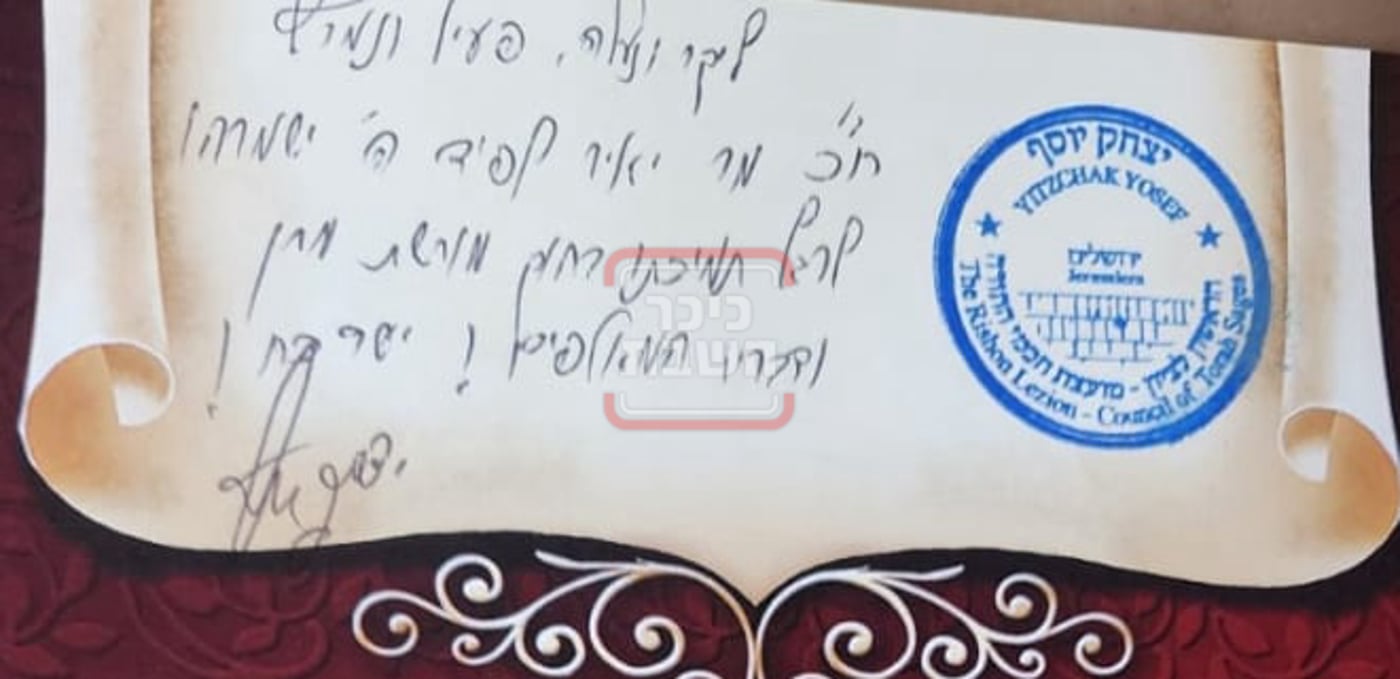 ליקר ונעלה, פעיל ונמרץ
ח"כ מר יאיר לפיד ה' ישמרהו
לרגל תמיכתו בחוק מורשת מרן
ודבריו המאלפים! ישר כח!
יצחק יוסף
יצחק יוסף
YITZCHAK YOSEF
ירושלים
Jerusalem
הראשון לציון - מועצת חכמי התורה
The Rishon Lezion - Council of Torah Sages
כיכר
השבת